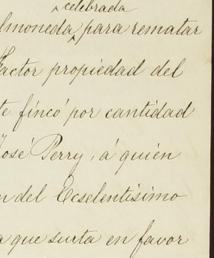 celebrada
lmoneda, para rematar
Factor propiedad del
te fincó por cantidad
José Perry, á quien
n del Ecselentísimo
a que surta en favor